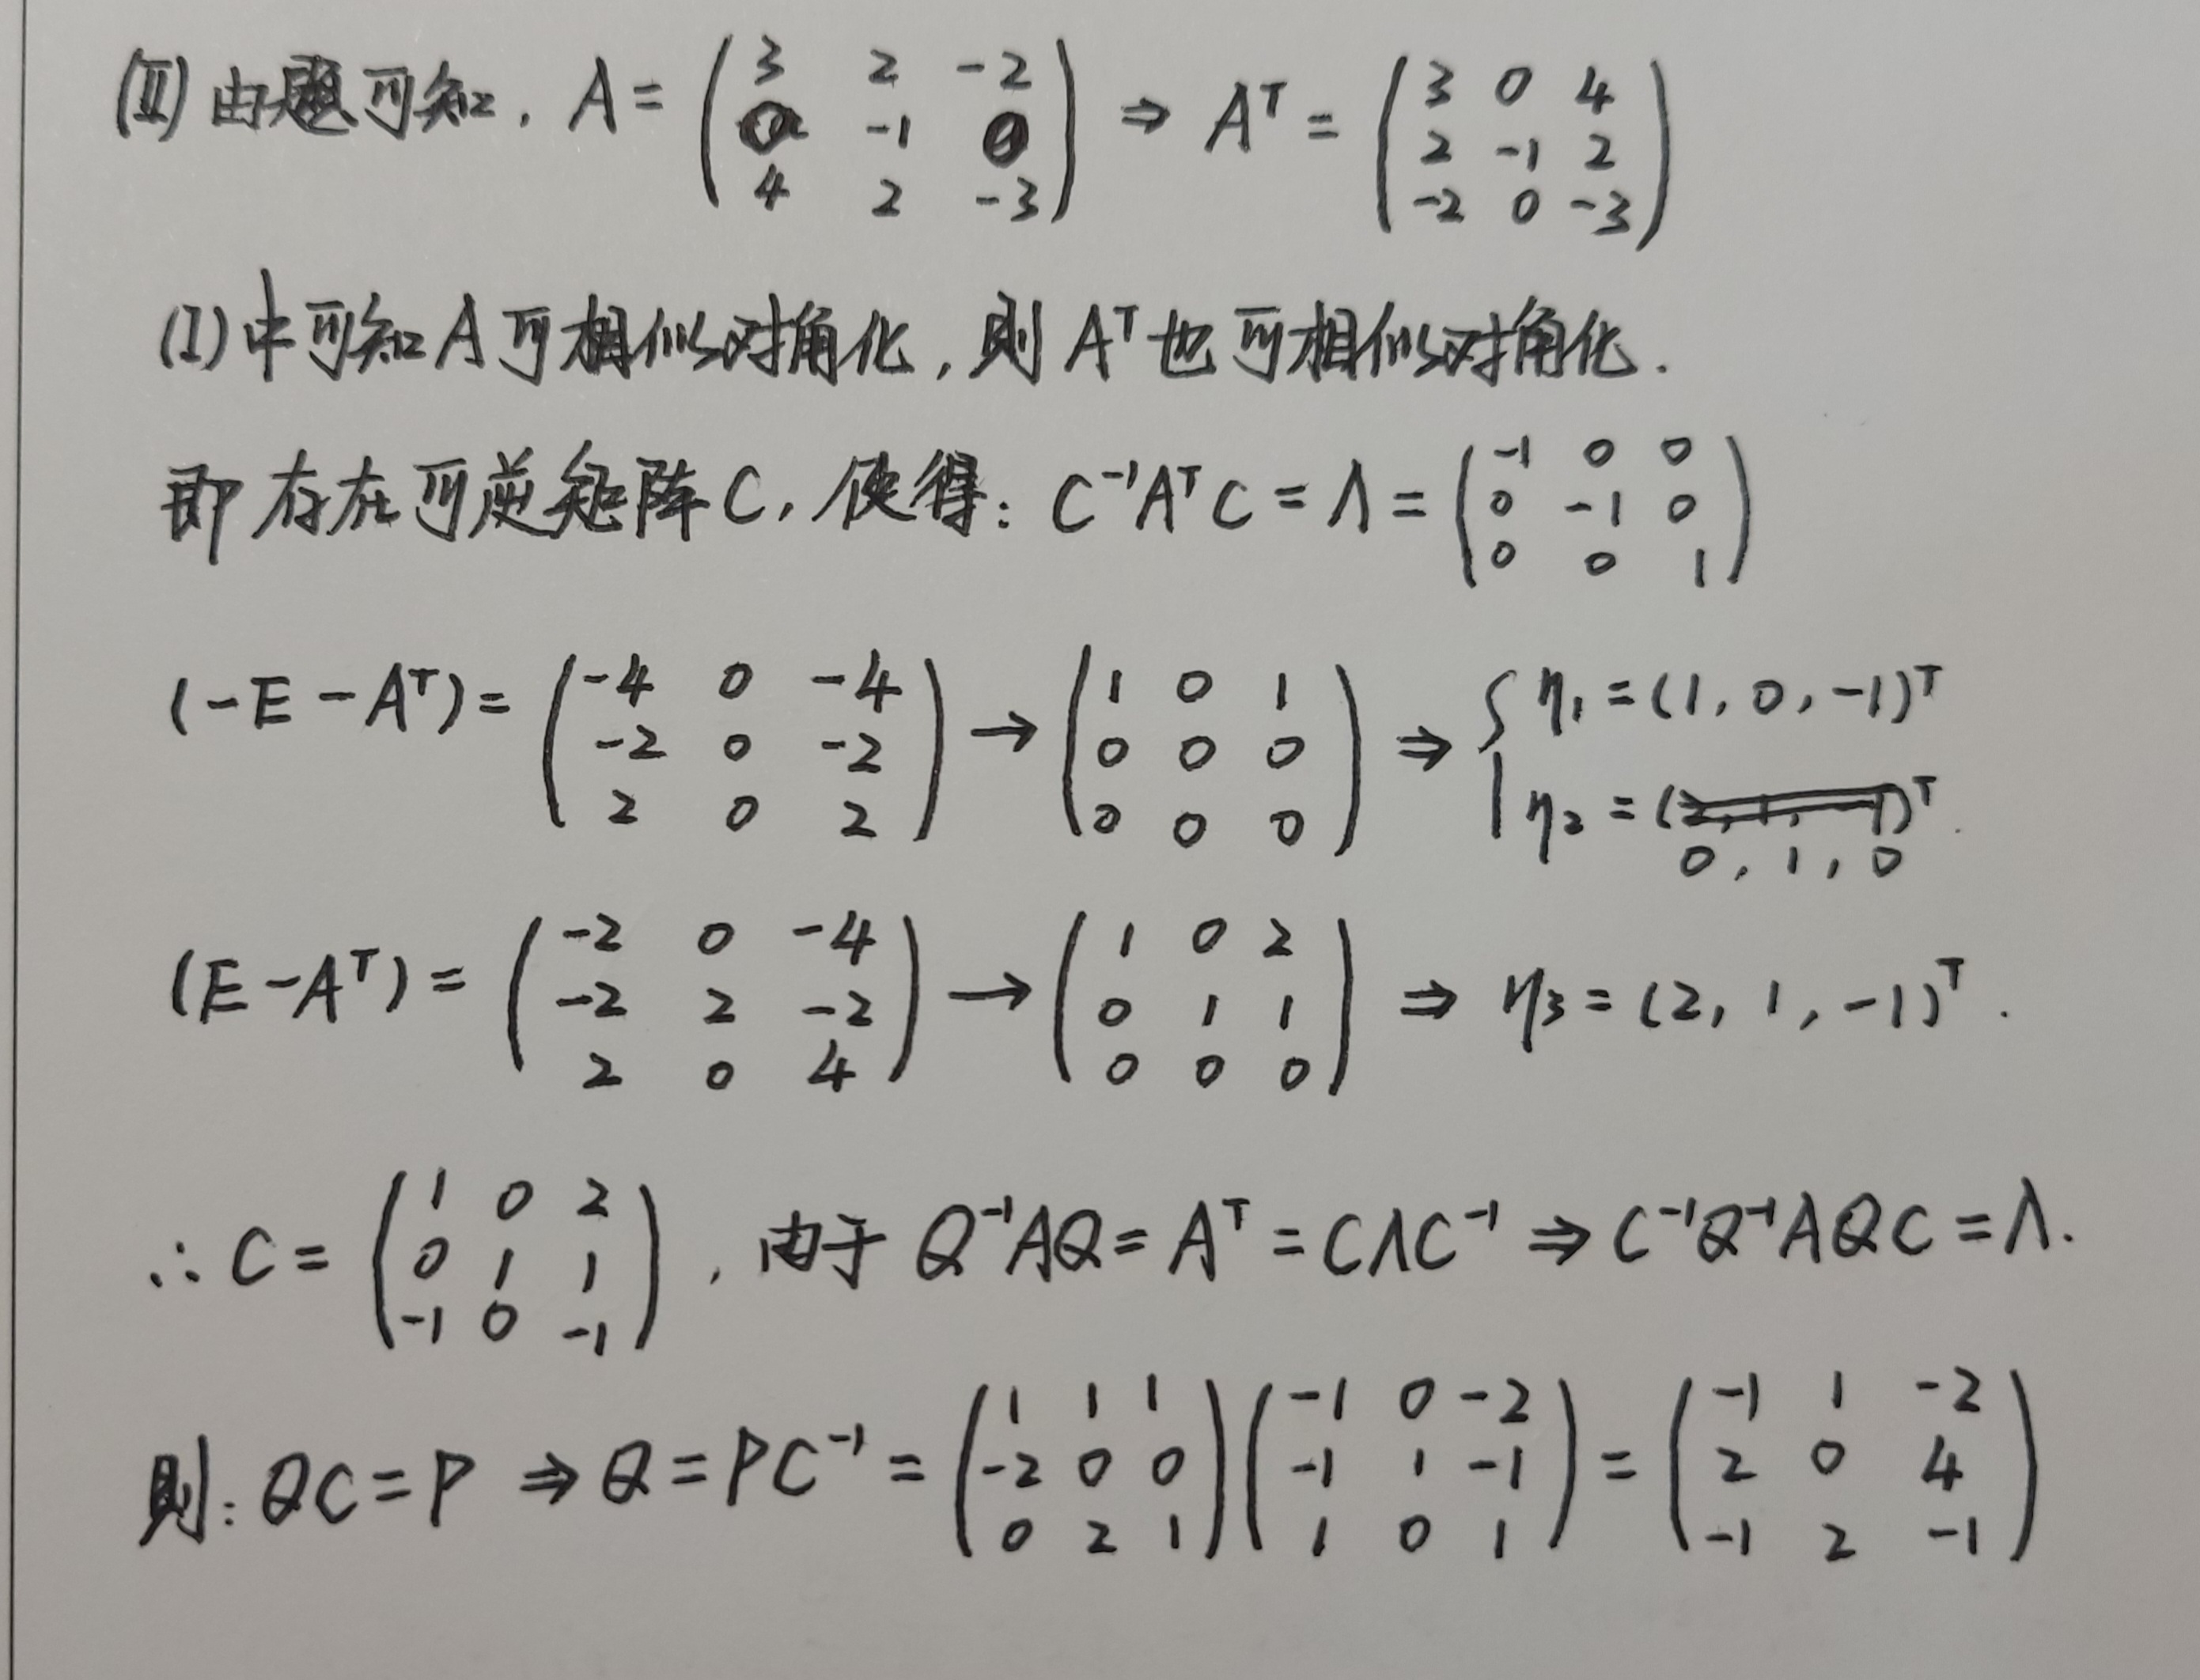 (II) 由题可知, A = (3 2 -2; 0 -1 0; 4 2 -3) ⇒ Aᵀ = (3 0 4; 2 -1 2; -2 0 -3)
(I)中可知A可相似对角化,则Aᵀ也可相似对角化.
即存在可逆矩阵C,使得: C⁻¹AᵀC = Λ = (-1 0 0; 0 -1 0; 0 0 1)
(-E-Aᵀ) = (-4 0 -4; -2 0 -2; 2 0 2) → (1 0 1; 0 0 0; 0 0 0) ⇒ { η₁ = (1, 0, -1)ᵀ
η₂ = (0, 1, 0)ᵀ.
(E-Aᵀ) = (-2 0 -4; -2 2 -2; 2 0 4) → (1 0 2; 0 1 1; 0 0 0) ⇒ η₃ = (2, 1, -1)ᵀ.
∴ C = (1 0 2; 0 1 1; -1 0 -1), 由于 Q⁻¹AQ = Aᵀ = CΛC⁻¹ ⇒ C⁻¹Q⁻¹AQC = Λ.
则: QC = P ⇒ Q = PC⁻¹ = (1 1 1; -2 0 0; 0 2 1)(-1 0 -2; -1 1 -1; 1 0 1) = (-1 1 -2; 2 0 4; -1 2 -1)